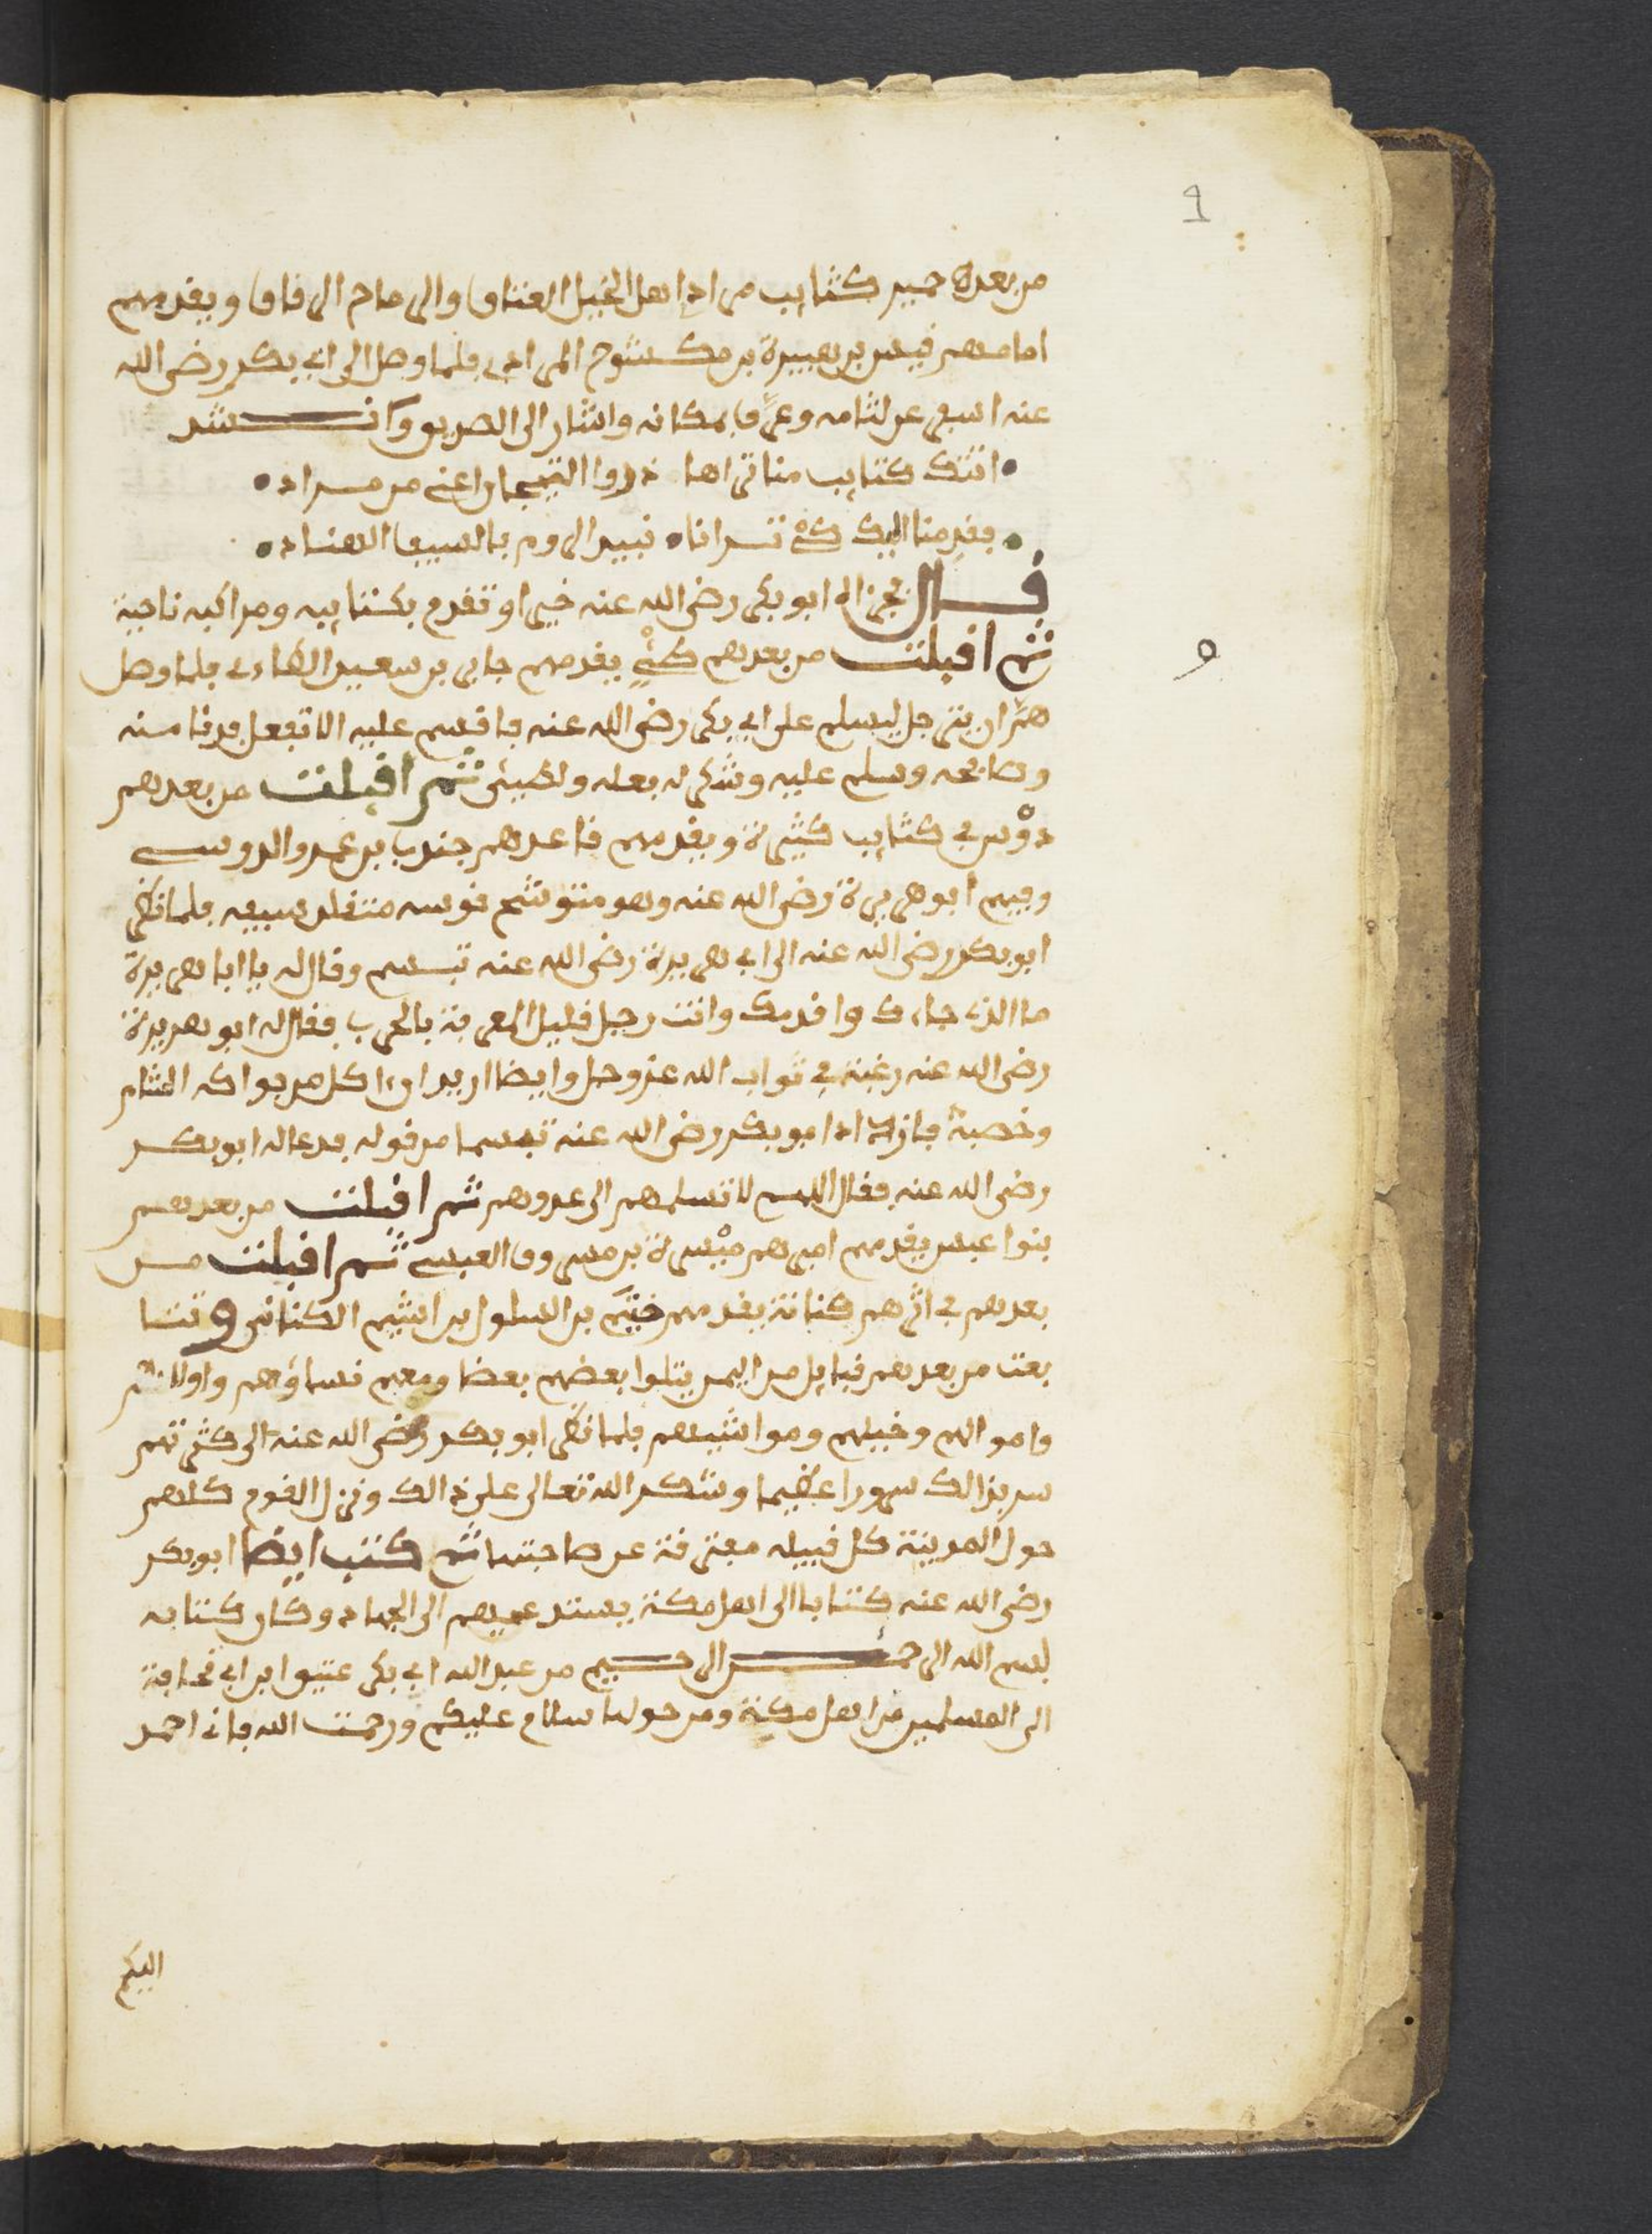 1
من بعده حمير كتايب مراد اهل الخيل العتاق والرماح الرقاق ويقدمهم
امامهم قيس بن هبيرة بن مكشوح المرادي فلما وصل الى ابي بكر رضي الله
عنه اسفر عن لثامه وعرف بمكانه واشار الى الصديق وانشد
اتتك كتايب منا تراها ذووا التيجار اعني من مراد
فقدمنا اليك كي ترانا نبيد الروم بالسيف
قال فجزاه ابو بكر رضي الله عنه خيرا وتقدم بكتايبه ومراكبه ناحية
ثم اقبلت من بعدهم طيء يقدمهم جابر بن سعيد الطاءي فلما وصل
و
همَّ ان يترجل ليسلم على ابي بكر رضي الله عنه فاقسم عليه الا تفعل فدنا منه
وصافحه وسلم عليه وشكر له فعله ولطيئ ثم اقبلت من بعدهم
دوْس في كتايب كثيرة ويقدمهم قاعدهم جندب بن عمرو الدوسي
وفيهم ابو هريرة رضي الله عنه وهو متوشح قوسه متقلد سيفه فلما نظر
ابو بكر رضي الله عنه الى ابي هريرة رضي الله عنه تبسم وقال له يا ابا هريرة
ما الذي جاءك واقدمك وانت رجل قليل المعرفة بالحرب فقال له ابو هريرة
رضي الله عنه رغبة في ثواب الله عز وجل وايضا اريد ان ءاكل من فواكه الشام
وخصبه فازداد ابو بكر رضي الله عنه تبسما من قوله فدعا له ابو بكر
رضي الله عنه فقال اللهم لا تسلمهم الى عدوهم ثم اقبلت من بعدهم
بنوا عبس يقدمهم اميرهم ميْسرة بن مسروق العبسي ثم اقبلت من
بعدهم في اثرهم كنانة يقدمهم خثيم بن السلول بن اشيم الكناني وتتا
بعت من بعدهم قبايل من اليمن يتلوا بعضهم بعضا ومعهم نساؤهم واولادهم
واموالهم وخيلهم ومواشيهم فلما نظر ابو بكر رضي الله عنه الى كثرتهم
سر بذالك سرورا عظيما وشكر الله تعالى على ذالك ونزل القوم كلهم
حول المدينة كل قبيله مفترقة عن صاحبتها ثم كتب ايضا ابو بكر
رضي الله عنه كتابا الى اهل مكة يستدعيهم الى الجهاد وكان كتابه
بسم الله الرحمن الرحيم من عبد الله ابي بكر عتيق ابن ابي قحافة
الى المسلمين من اهل مكة ومن حولها سلام عليكم ورحمت الله فاني احمد
اليكم